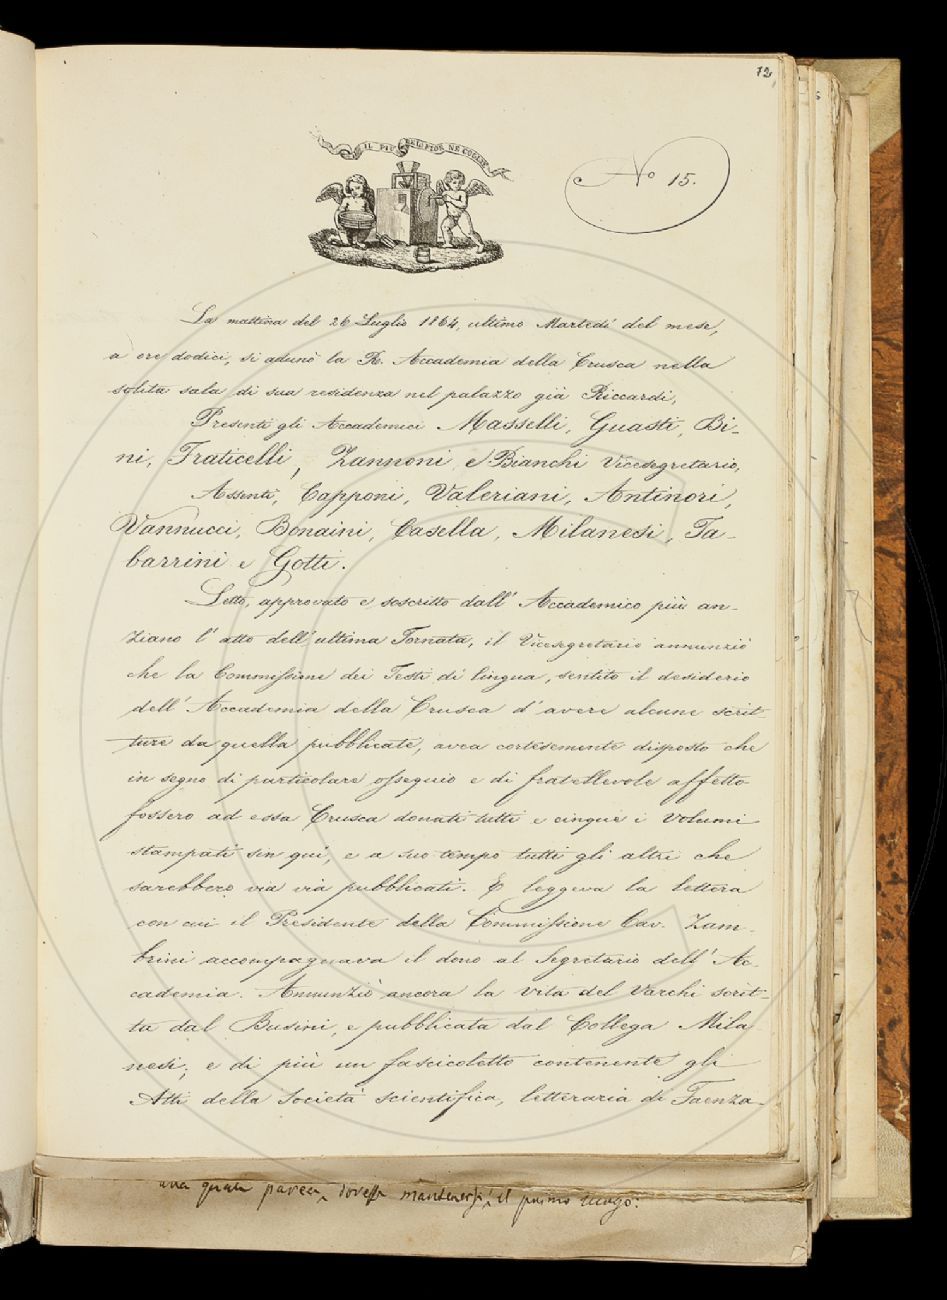 12
IL PIÙ BEL FIOR NE COGLIE
No 15.
La mattina del 26 Luglio 1864, ultimo Martedì del mese,
a ore dodici, si adunò la R. Accademia della Crusca nella
solita sala di sua residenza nel palazzo già Riccardi.
Presenti gli Accademici Masselli, Guasti, Bi-
ni, Fraticelli, Zannoni, e Bianchi Vicesegretario,
Assenti, Capponi, Valeriani, Antinori,
Vannucci, Bonaini, Casella, Milanesi, Ta-
barrini e Gotti.
Letto, approvato e soscritto dall' Accademico più an-
ziano l' atto dell' ultima Tornata, il Vicesegretario annunziò
che la Commissione dei Testi di lingua, sentito il desiderio
dell' Accademia della Crusca d' avere alcune scrit-
ture da quella pubblicate, avea cortesemente disposto che
in segno di particolare ossequio e di fratellevole affetto
fossero ad essa Crusca donati tutti e cinque i Volumi
stampati sin qui, e a suo tempo tutti gli altri che
sarebbero via via pubblicati. E leggeva la lettera
con cui il Presidente della Commissione Cav. Zam-
brini accompagnava il dono al Segretario dell' Ac-
cademia. Annunziò ancora la vita del Varchi scrit-
ta dal Busini, e pubblicata dal Collega Mila
nesi; e di più un fascicoletto contenente gli
Atti della Società scientifica, letteraria di Faenza.
una quale pareva, dovesse mantenersi, il primo luogo: